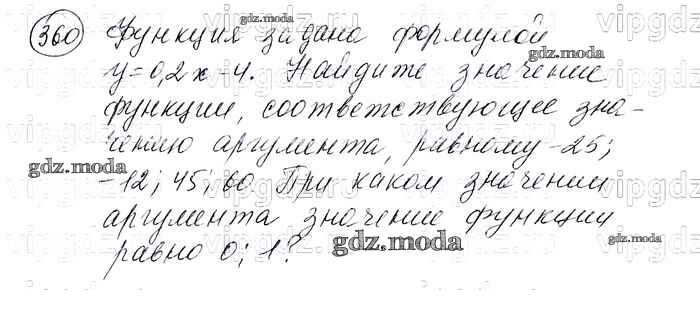 360 Функция задана формулой
y=0,2x-4. Найдите значение
функции, соответствующее зна-
чению аргумента, равному -25;
-12; 45; 60. При каком значении
аргумента значение функции
равно 0; 1?
gdz.moda
gdz.moda
gdz.moda
gdz.moda
gdz.moda
gdz.moda